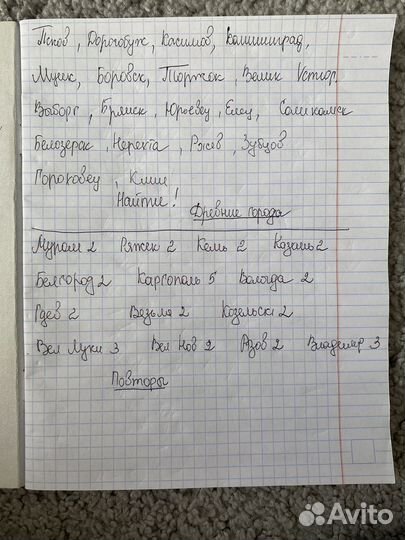 Псков, Дорогобуж, Касимов, Калининград,
Мценск, Боровск, Торжок, Велик Устюг,
Выборг, Брянск, Юрьевец, Елец, Соликамск
Белозерск, Нерехта, Ржев, Зубцов
Гороховец, Клин
Найти!
Древние города
Муром 2 Ряжск 2 Кемь 2 Казань 2
Белгород 2 Каргополь 5 Вологда 2
Гдов 2 Вязьма 2 Козельск 2
Вел Луки 3 Вел Нов 2 Азов 2 Владимир 3
Повторы
Avito